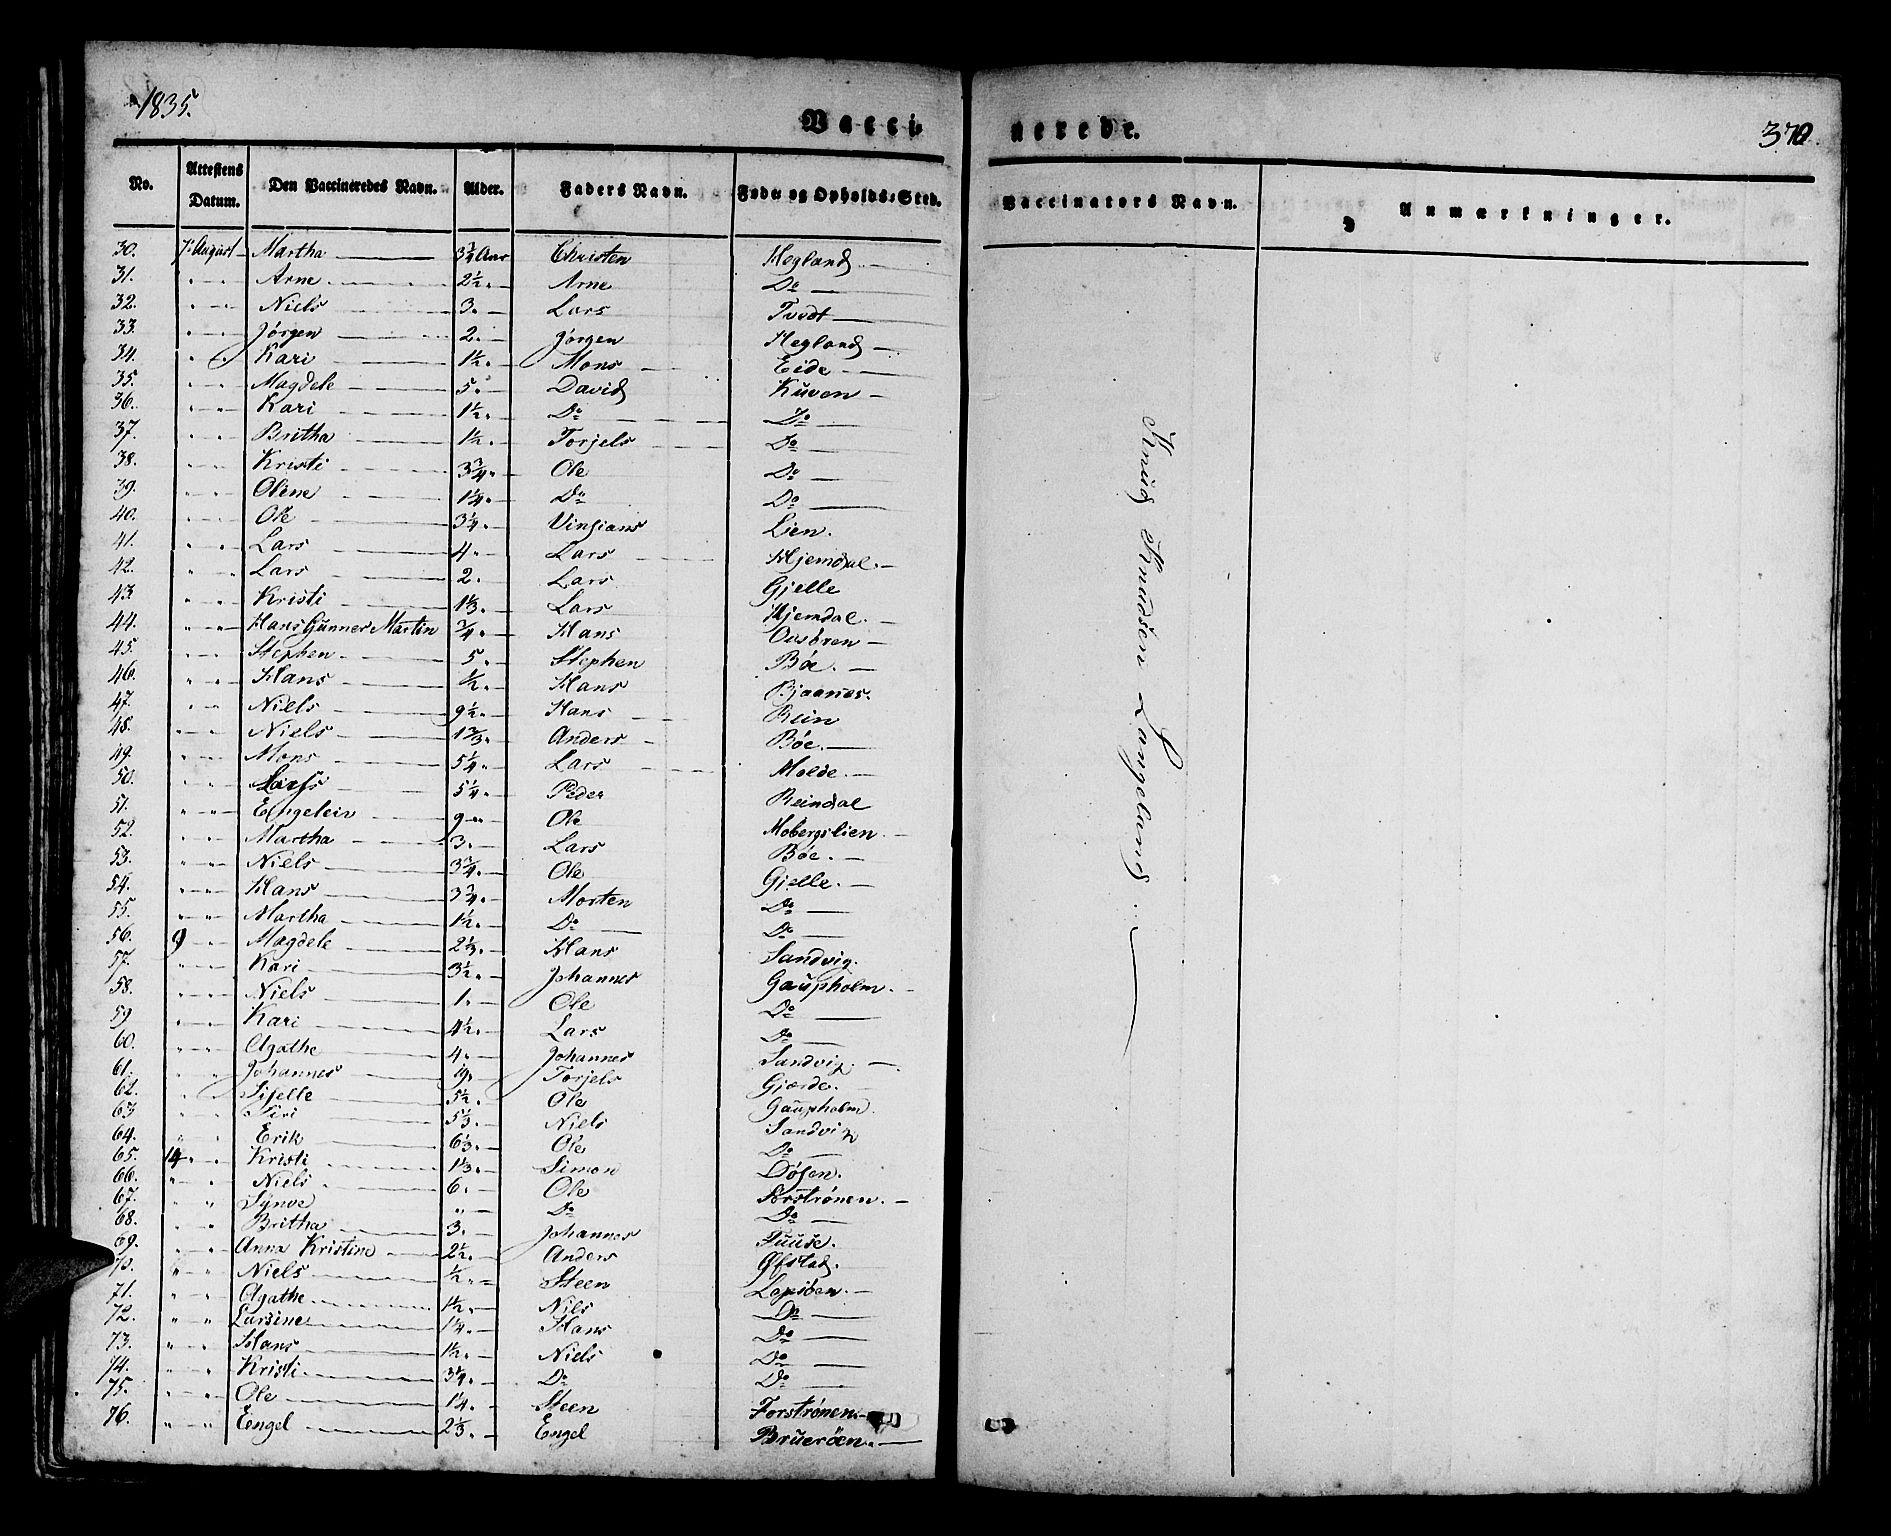 1835.
Vacci-
nerede.
370.
No. Attestens Datum. Den Vaccineredes Navn. Alder. Faders Navn. Føde og Opholds-Sted.
Vaccinators Navn. Anmærkninger.
30. 7. August Martha 3¼ Aar Christen Hegland
31. " " Arne 2½ " Arne Do
32. " " Niels 3 " Lars Tvedt
33. " " Jörgen 2 " Jörgen Hegland
34. " " Kari 1½ " Mons Eide
35. " " Magdele 5 " David Kuven
36. " " Kari 1½ " Do Do
37. " " Britha 1½ " Torjels Do
38. " " Kristi 3¾ " Ole Do
39. " " Oline 1¼ " Do Do
40. " " Ole 3¼ " Vingians Lien.
41. " " Lars 4 " Lars Hjemdal.
42. " " Lars 2. Lars Gjelle
43. " " Kristi 1⅓ " Lars Hjemdal.
44. " " Hans Gunner Martin ¾ " Hans Ousören
45. " " Stephen 5 " Stephen Böe.
46. " " Hans ½ " Hans Bjaanes.
47. " " Niels 9½ " Hans Rein
48. " " Niels 1⅔ " Anders Böe.
49. " " Mons 5¼ " Lars Molde.
50. " " Lars 5¼ " Peder Reindal
51. " " Engelein 9 " Ole Mobergslien.
52. " " Martha 3. Lars Böe.
53. " " Niels 3¾ " Ole Gjelle.
54. " " Hans 3¾ " Morten Do
55. " " Martha 1½ " Do Do
56. 9 " Magdele 2⅓ " Hans Sandvig.
57. " " Kari 3½ " Johannes Gaupholm.
58. " " Niels 1. Ole Do
59 " " Kari 4½ " Lars Do
60. " " Agathe 4. Johannes Sandvig.
61. " " Johannes 19. Torjels Gjerde.
62. " " Siselle 5½ " Ole Gaupholm.
63 " " Siri 5⅓ Niels Sandvig
64. " " Erik 6⅓ " Ole Do
65. 14 " " Kristi 1⅓ " Simon Dösen.
66. " " Niels 6. Ole Forströnen.
67. " " Synve " Do Do
68. " " Britha 3. Johannes Tuuse.
69. " " Anna Kristine 2½ " Anders Öfstad.
70. " " Niels ½ " Steen Lepsöen.
71. " " Agathe 1½ " Nils Do
72. " " Larsine 1¼ " Hans Do
73. " " Hans 1½ " Niels Do
74. " " Kristi 3¼ " Do Do
75. " " Ole 1¼ " Steen Forströnen.
76. " " Engel 2⅓ " Engel Brueröen.
Knud Knudsen Langeland.